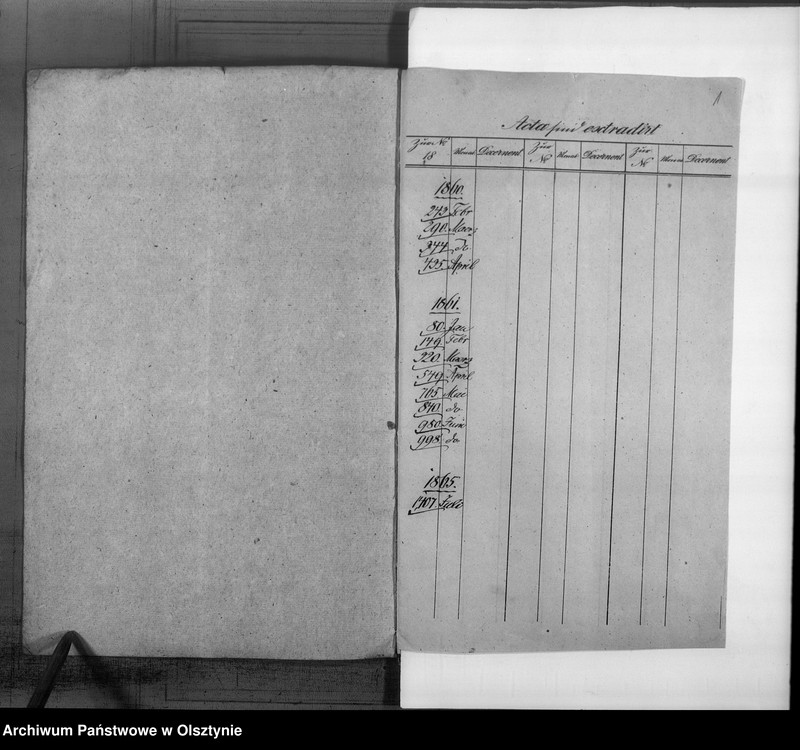 1
Acta sind extradirt
Zur No 18 Monat Decernent Zur No Monat Decernent Zur No Monat Decernent
1860.
243. Febr
290. Maerz
344. do
435. April
1861.
80. Jan
149. Febr
320. Maerz
549. April
765. Mai
840. do
980. Juni
998. do
1865.
1,407.
Archiwum Państwowe w Olsztynie